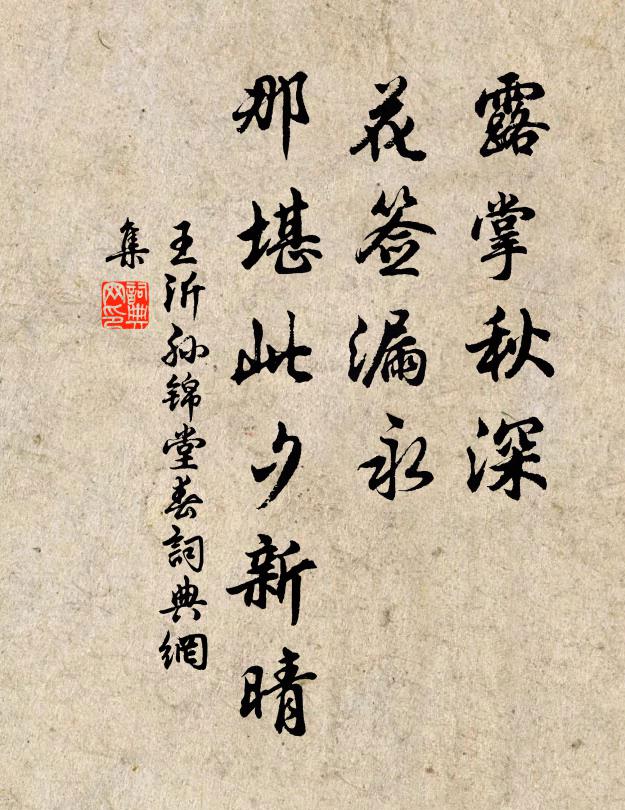 露掌秋深
花签漏永
那堪此夕新晴
王沂孙锦堂春詞典網
集
詞典网印